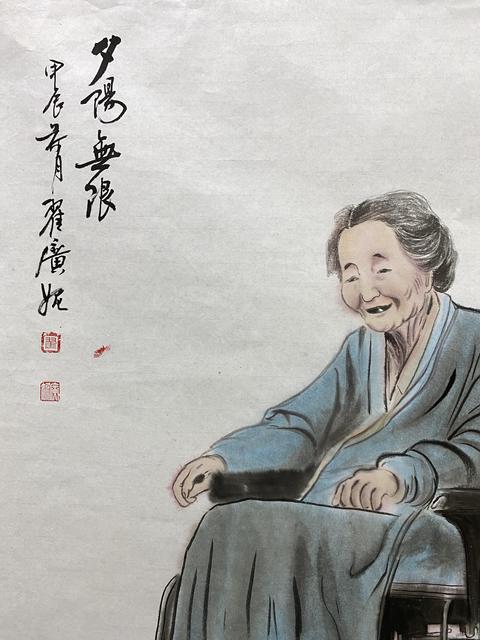 夕陽無限
甲辰荷月翟廣妮